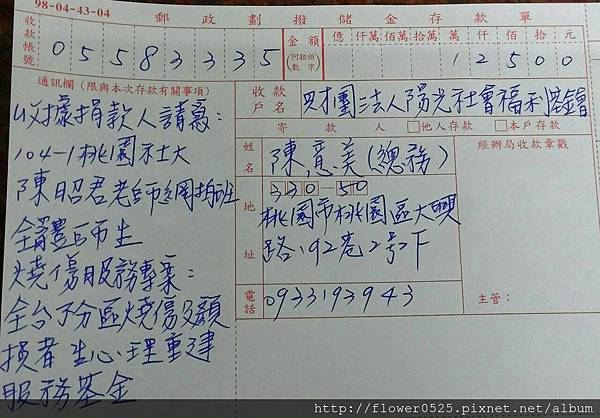 98-04-43-04
郵政劃撥儲金存款單
收款帳號
05583335
金額
(阿拉伯數字)
億 仟萬 佰萬 拾萬 萬 仟 佰 拾 元
12500
通訊欄(限與本次存款有關事項)
收據捐款人請寫:
104-1桃園社大
陳昭君老師網拍班
全體師生
燒傷服務專案:
全台不分區燒傷及顏
損者生心理重建
服務基金
收款戶名
財團法人陽光社會福利基金會
寄款人
□他人存款 □本戶存款
姓名
陳意美(總務)
經辦局收款章戳
地址
330-50
桃園市桃園區大興
路192巷2号下
電話
0933193943
主管:
http://flower0525.pixnet.net/album